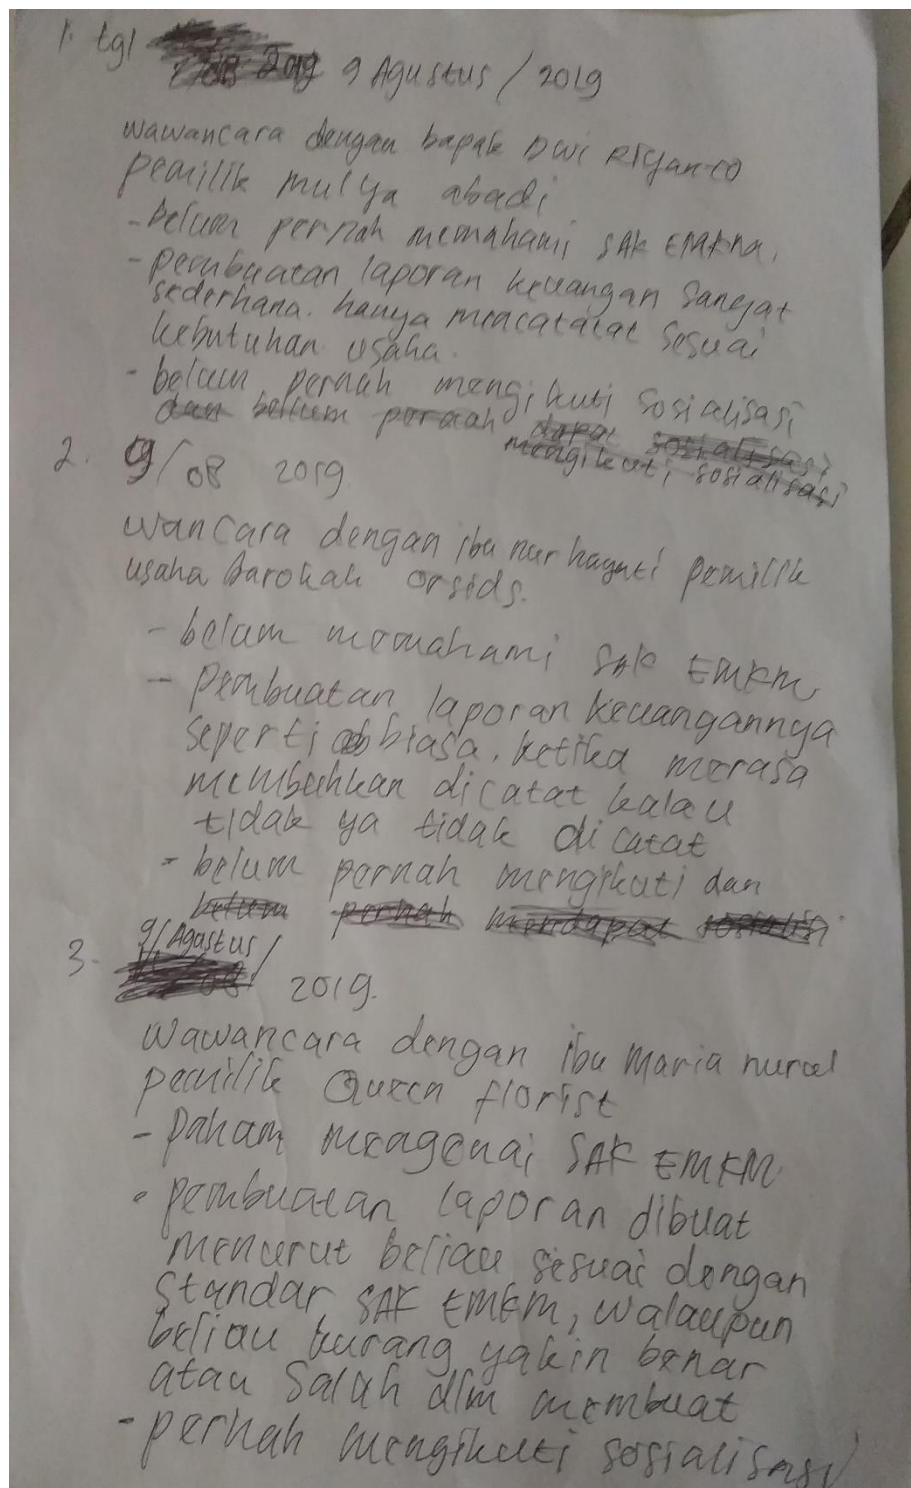 1. tgl 9 Agustus / 2019
wawancara dengan bapak Dwi Riyanto
pemilik mulya abadi
- belum pernah memahami SAK EMKM.
- pembuatan laporan keuangan sangat
sederhana. hanya mencatatat sesuai
kebutuhan usaha.
- belum pernah mengikuti sosialisasi
dan bellum pernah dapat sosialisasi
mengikuti sosialisasi
2. 9/08 2019
wancara dengan ibu nur hayati pemilik
usaha barokah
- belum memahami SAK EMKM
- pembuatan laporan keuangannya
seperti biasa. ketika merasa
membuhkan dicatat kalau
tidak ya tidak dicatat
- belum pernah mengikuti dan
belum pernah mendapat sosialisi
3. 9/Agustus/
2019.
wawancara dengan ibu Maria nurul
pemilik Queen florist
- paham mengenai SAK EMKM
- pembuatan laporan dibuat
menurut beliau sesuai dengan
standar SAK EMKM, walaupun
beliau kurang yakin benar
atau salah dlm membuat
- pernah mengikuti sosialisasi